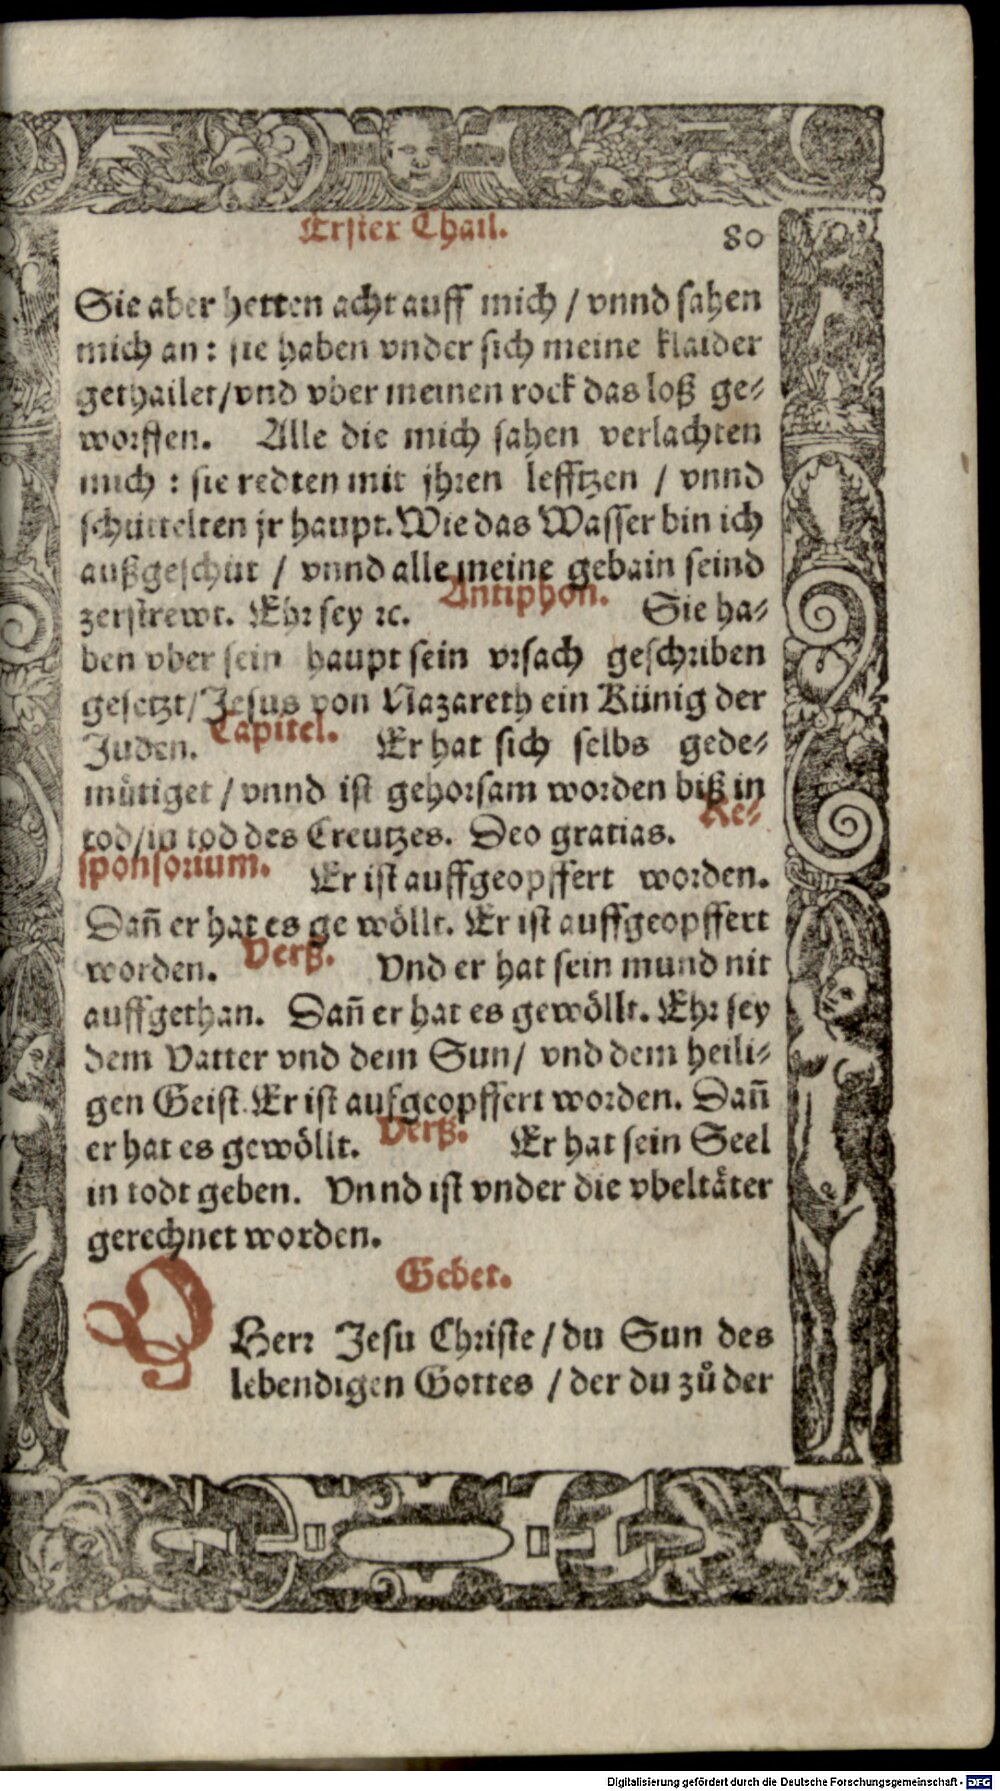 Erster Thail.
80
Sie aber hetten acht auff mich / vnnd sahen
mich an: sie haben vnder sich meine klaider
gethailet/vnd vber meinen rock das loß ge⸗
worffen. Alle die mich sahen verlachten
mich : sie redten mit jhren lefftzen / vnnd
schüttelten jr haupt. Wie das Wasser bin ich
außgeschüt / vnnd alle meine gebain seind
zerstrewt. Ehr sey ꝛc. Antiphon. Sie ha⸗
ben vber sein haupt sein vrsach geschriben
gesetzt/Jesus von Nazareth ein Künig der
Juden. Capitel. Er hat sich selbs gede⸗
mütiget / vnnd ist gehorsam worden biß in
tod/in tod des Creutzes. Deo gratias. Re⸗
sponsorium. Er ist auffgeopffert worden.
Dañ er hat es ge wöllt. Er ist auffgeopffert
worden. Verß. Vnd er hat sein mund nit
auffgethan. Dañ er hat es gewöllt. Ehr sey
dem Vatter vnd dem Sun/ vnd dem heili⸗
gen Geist. Er ist aufgeopffert worden. Dañ
er hat es gewöllt. Verß. Er hat sein Seel
in todt geben. Vnnd ist vnder die vbeltäter
gerechnet worden.
Gebet.
O Herr Jesu Christe/du Sun des
lebendigen Gottes / der du zů der
Digitalisierung gefördert durch die Deutsche Forschungsgemeinschaft - DFG